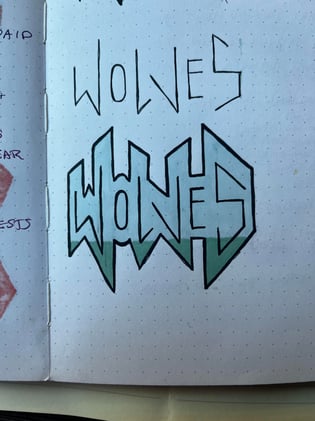 PAID
EAR
ESTS
WOLVES
WOLVES